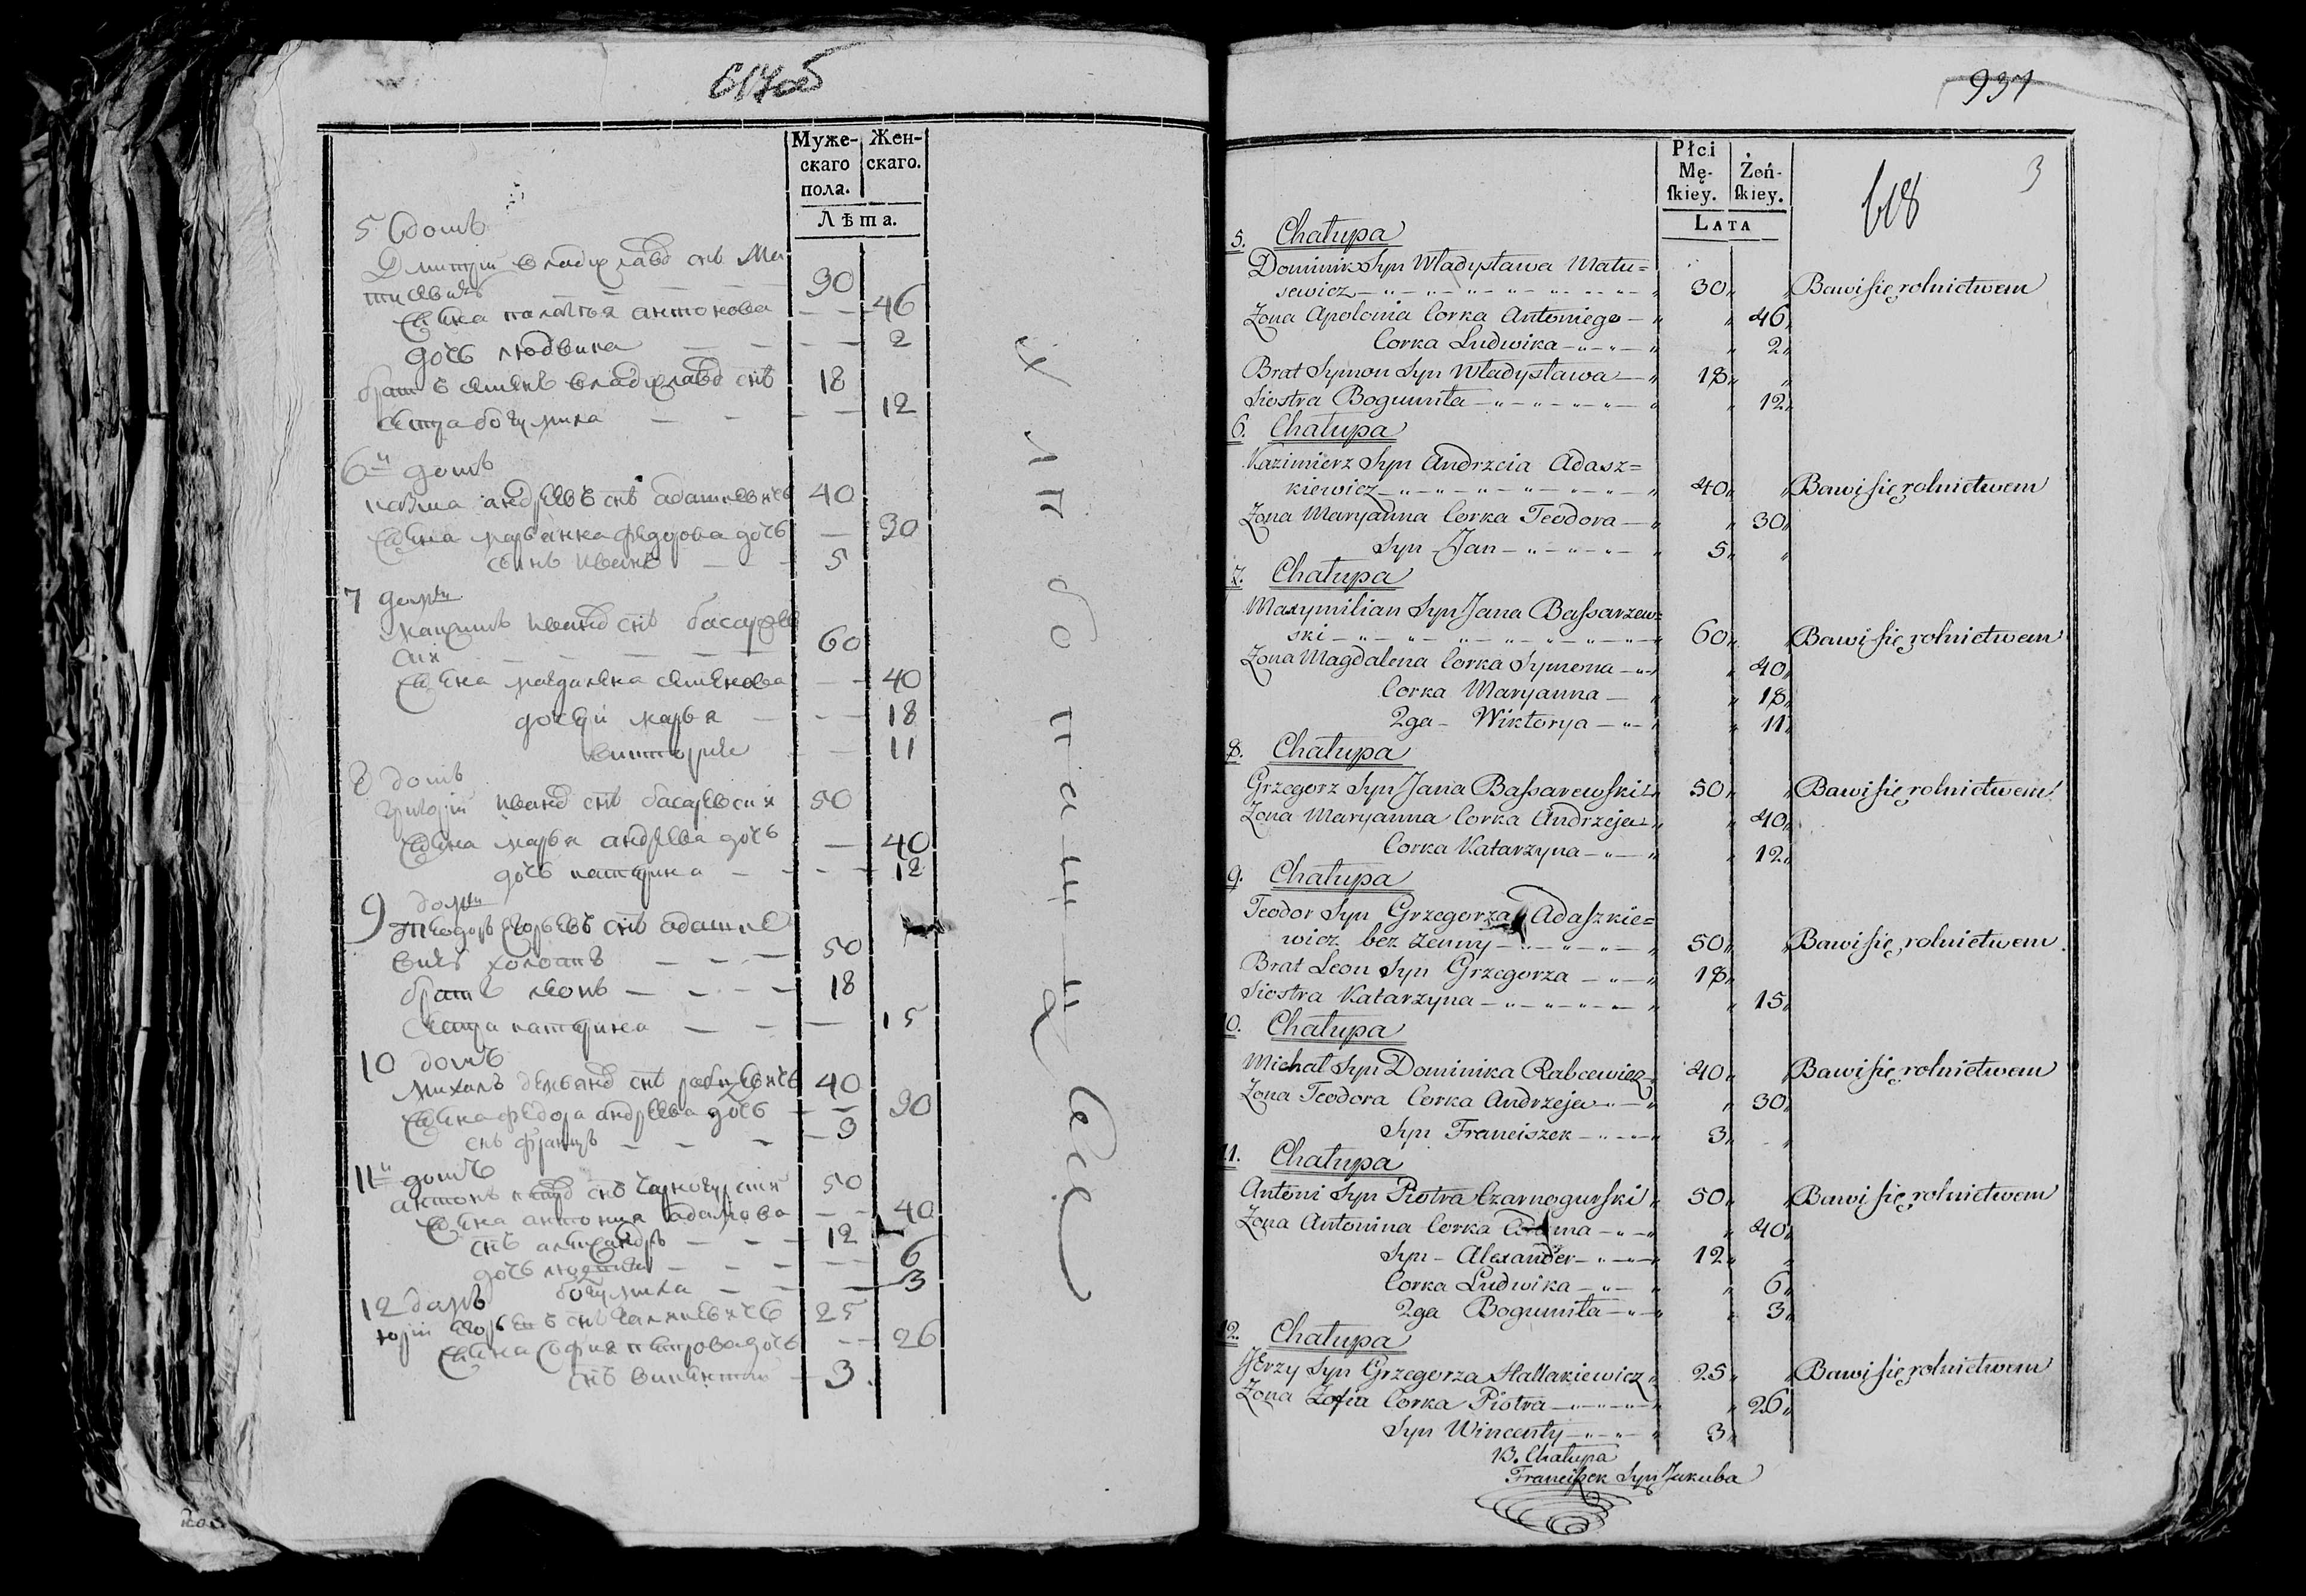 617об
Муже- Жен-
скаго скаго.
пола.
Лѣта.
5 домъ
Дмитрій владиславо снъ Ма
тусевичъ — — — 30
жена палагья антонова — — 46
дочь людвика — — — 2
братъ семенъ владиславо снъ 18
сестра богумила — — — 12
6й домъ
казма андреевъ снъ адашкевичъ 40
жена марьянна федорова дочь — 30
сынъ иванъ — — 5
7 домъ
максимъ ивано снъ басаревс
кій — — — 60
жена магдалена семенова — — 40
дочери марья — — 18
виктория — 11
8 домъ
григорій ивано снъ басаревскій 50
жена марья андреева дочь — 40
дочь катерина — — — 12
9 домъ
теодоръ егорьевъ снъ адашке
вичъ холостъ — — — 50
братъ леонъ — — — 18
сестра катерина — — — 15
10 домъ
михалъ демьяно снъ рабцевичъ 40
жена федора андреева дочь — — 30
снъ францъ — — — 3
11й домъ
антонъ петро снъ чарногурскій 50
жена антония адамова — — 40
снъ александръ — — — 12
дочь людвика — — — 6
богумила — — 3
12 домъ
юрій егорьевъ снъ галлкевичъ 25
жена софия петрова дочь — — 26
снъ викентий — 3
хлебопашцы
937
Płci
Mę- Żeń-
ſkiey. ſkiey.
LATA
618
3
5. Chałupa
Dominik Syn Władysława Matu=
sewicz 30 Bawi się rolnictwem
Zona Apolonia Corka Antoniego 46
Corka Ludwika 2
Brat Symon Syn Władysława 18
Siostra Bogumiła 12
6. Chałupa
Kazimierz Syn Andrzeia Adasz=
kiewicz 40 Bawi się rolnictwem
Zona Maryanna Corka Teodora 30
Syn Jan 5
7. Chałupa
Maxymilian Syn Jana Baſsarzew=
ski 60 Bawi się rolnictwem
Zona Magdalena Corka Symona 40
Corka Maryanna 18
2ga Wiktorya 11
8. Chałupa
Grzegorz Syn Jana Baſsarewſki 50 Bawi się rolnictwem
Zona Maryanna Corka Andrzeja 40
Corka Katarzyna 12
9. Chałupa
Teodor Syn Grzegorza Adaſzkie=
wicz bez zenny 50 Bawi się rolnictwem
Brat Leon Syn Grzegorza 18
Siostra Katarzyna 15
10. Chałupa
Michał Syn Dominika Rabcewicz 40 Bawi się rolnictwem
Zona Teodora Corka Andrzeja 30
Syn Franciszek 3
11. Chałupa
Antoni Syn Piotra Czarnogurſki 50 Bawi się rolnictwem
Zona Antonina Corka Adama 40
Syn Alexander 12
Corka Ludwika 6
2ga Bogumiła 3
12. Chałupa
JErzy Syn Grzegorza Hallakiewicz 25 Bawi się rolnictwem
Zona Zofia Corka Piotra 26
Syn Wincenty 3
13. Chałupa
Franciſzek Syn Jakuba